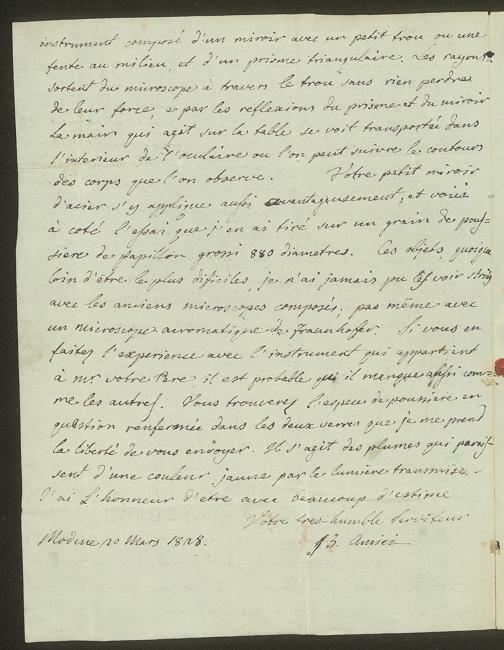 instrument composé d'un miroir avec un petit trou ou une
fente au milieu, et d'un prisme triangulaire. Les rayons
sortent du microscope à travers le trou sans rien perdre
de leur force e par les reflexions du prisme et du miroir
la main qui agit sur la table se voit transportée dans
l'interieur de l'oculaire ou l'on peut suivre le contours
des corps que l'on observe. Vôtre petit miroir
d'acier s'y applique aussi avantagusement, et voici
à coté l'essai que j'en ai tiré sur un grain de pous-
siere de papillon grossi 880 diametres. Ces objets, quoique
loin d'être le plus dificiles, je n'ai jamais pu les voir striés
avec les anciens microscopes composés, pas même avec
un microscope acromatique de Fraunhofer. Si vous en
faites l'experience avec l'instrument qui appartient
à mr. votre Pere il est probable qui il manque aussi com-
me les autres. Vous trouverez l'espece de poussiere en
question renfermée dans les deux verres que je me prend
la liberté de vous envoyer. Il s'agit des plumes qui parais-
sent d'une couleur jaune par la lumière transmise.
J'ai l'honneur d'etre avec beaucoup d'estime
Votre tres-humble serviteur
Modene 20 Mars 1828. J B. Amici